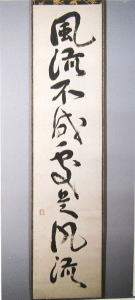 風流不成處是風流